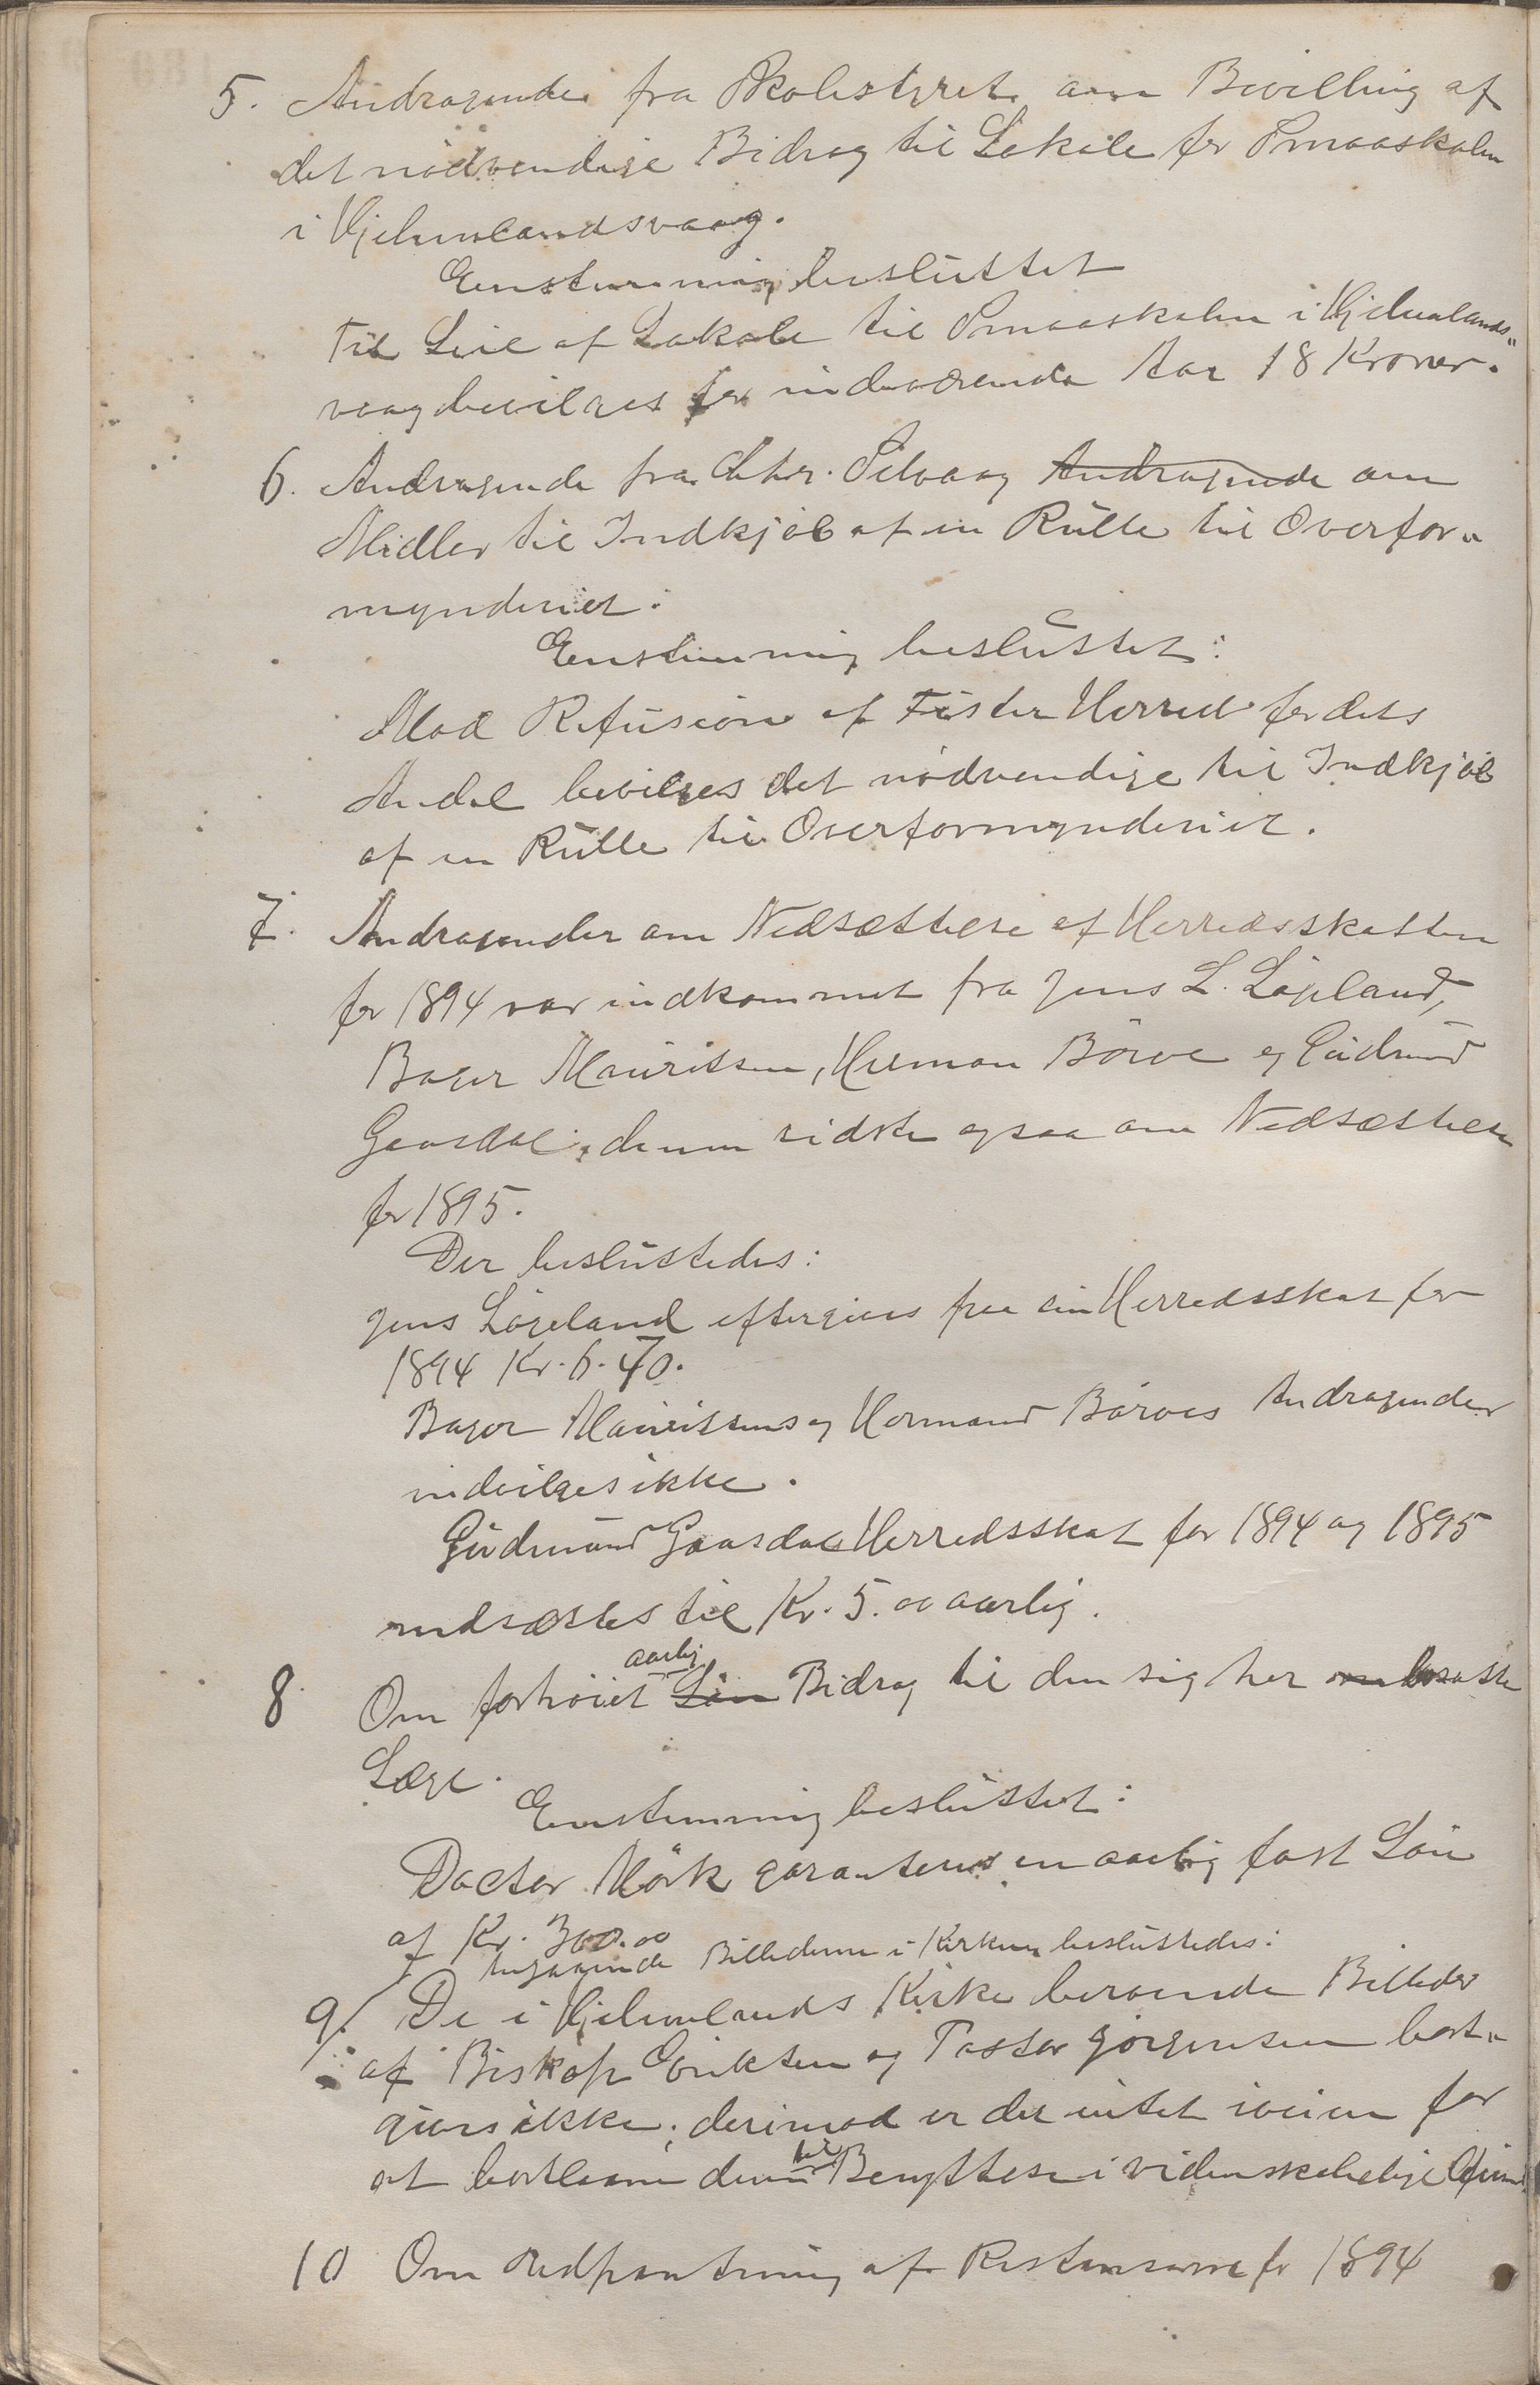 5. Andragende fra Skolestyret om Bevilling af
det nødvendige Bidrag til Lokale for Smaaskolen
i Hjelmelandsvaag.
Eenstemmig besluttet
Til Leie af Lokale til Smaaskolen i Hjelmelands„
vaag bevilges for indeværende Aar 18 Kroner.
6. Andragende fra Chr. Selvaag Andragende om
Midler til Indkjøb af en Rulle til Overfor„
mynderiet:
Eenstemmig besluttet:
Mod Refusion af Fister Herred for dets
Andel bevilges det nødvendige til Indkjøb
af en Rulle til Overformynderiet.
7. Andragender om Nedsættelse af Herredsskatten
for 1894 var indkommet fra Jens L. Løgeland,
Bager Mauritsen, Herman Börve og Gudmund
Gaasdal; denne sidste ogsaa om Nedsættelse
for 1895.
Der besluttedes:
Jens Løgeland eftergives fra sin Herredsskat for
1894 Kr. 6.40.
Bager Mauritsens og Hermand Børves Andragender
indvilges ikke.
Gudmund Gaasdals Herredsskat for 1894 og 1895
nedsættes til Kr. 5.00 aarlig.
8. Om forhøiet Løn aarlig Bidrag til den sig her bosatte
Læge.
Eenstemmig besluttet:
Doctor Mörk garanteres en aarlig fast Løn
af Kr. 300.00
Angaaende Billederne i Kirken besluttedes:
9/. De i Hjelmelands Kirke beroende Billeder
af Biskop Eriksen og Pastor Jørgensen bort„
gives ikke; derimod er der intet iveien for
at bortlaane dem til Benyttelse i videnskabelige Øiemed.
10 Om Udpantning af Restancerne for 1894